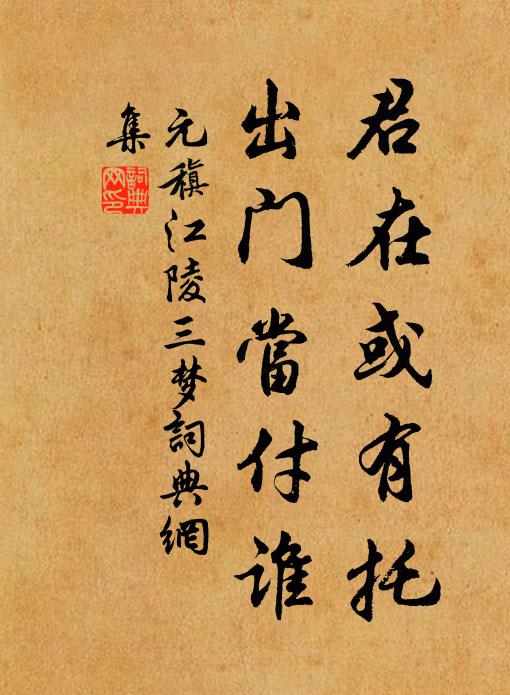 君在或有托
出门當付谁
元稹江陵三梦詞典網
集
詞典
网印